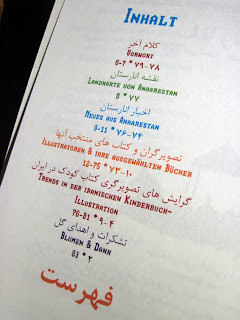 Inhalt
کلام آخر
Vorwort
6-7 * ۷۹-۷۸
نقشه انارستان
Landkarte von Anarestan
8 * ۷۷
اخبار انارستان
Neues aus Anarestan
9-11 * ۷۶-۷۴
تصویرگران و کتاب های منتخب آنها
Illustratoren & ihre ausgewählten Bücher
12-75 * ۷۳-۱۰
گرایش های تصویرگری کتاب کودک در ایران
Trends in der iranischen Kinderbuch-
Illustration
76-81 * ۹-۴
تشکرات و اهدای گل
Blumen & Dank
83 * ۲
فهرست